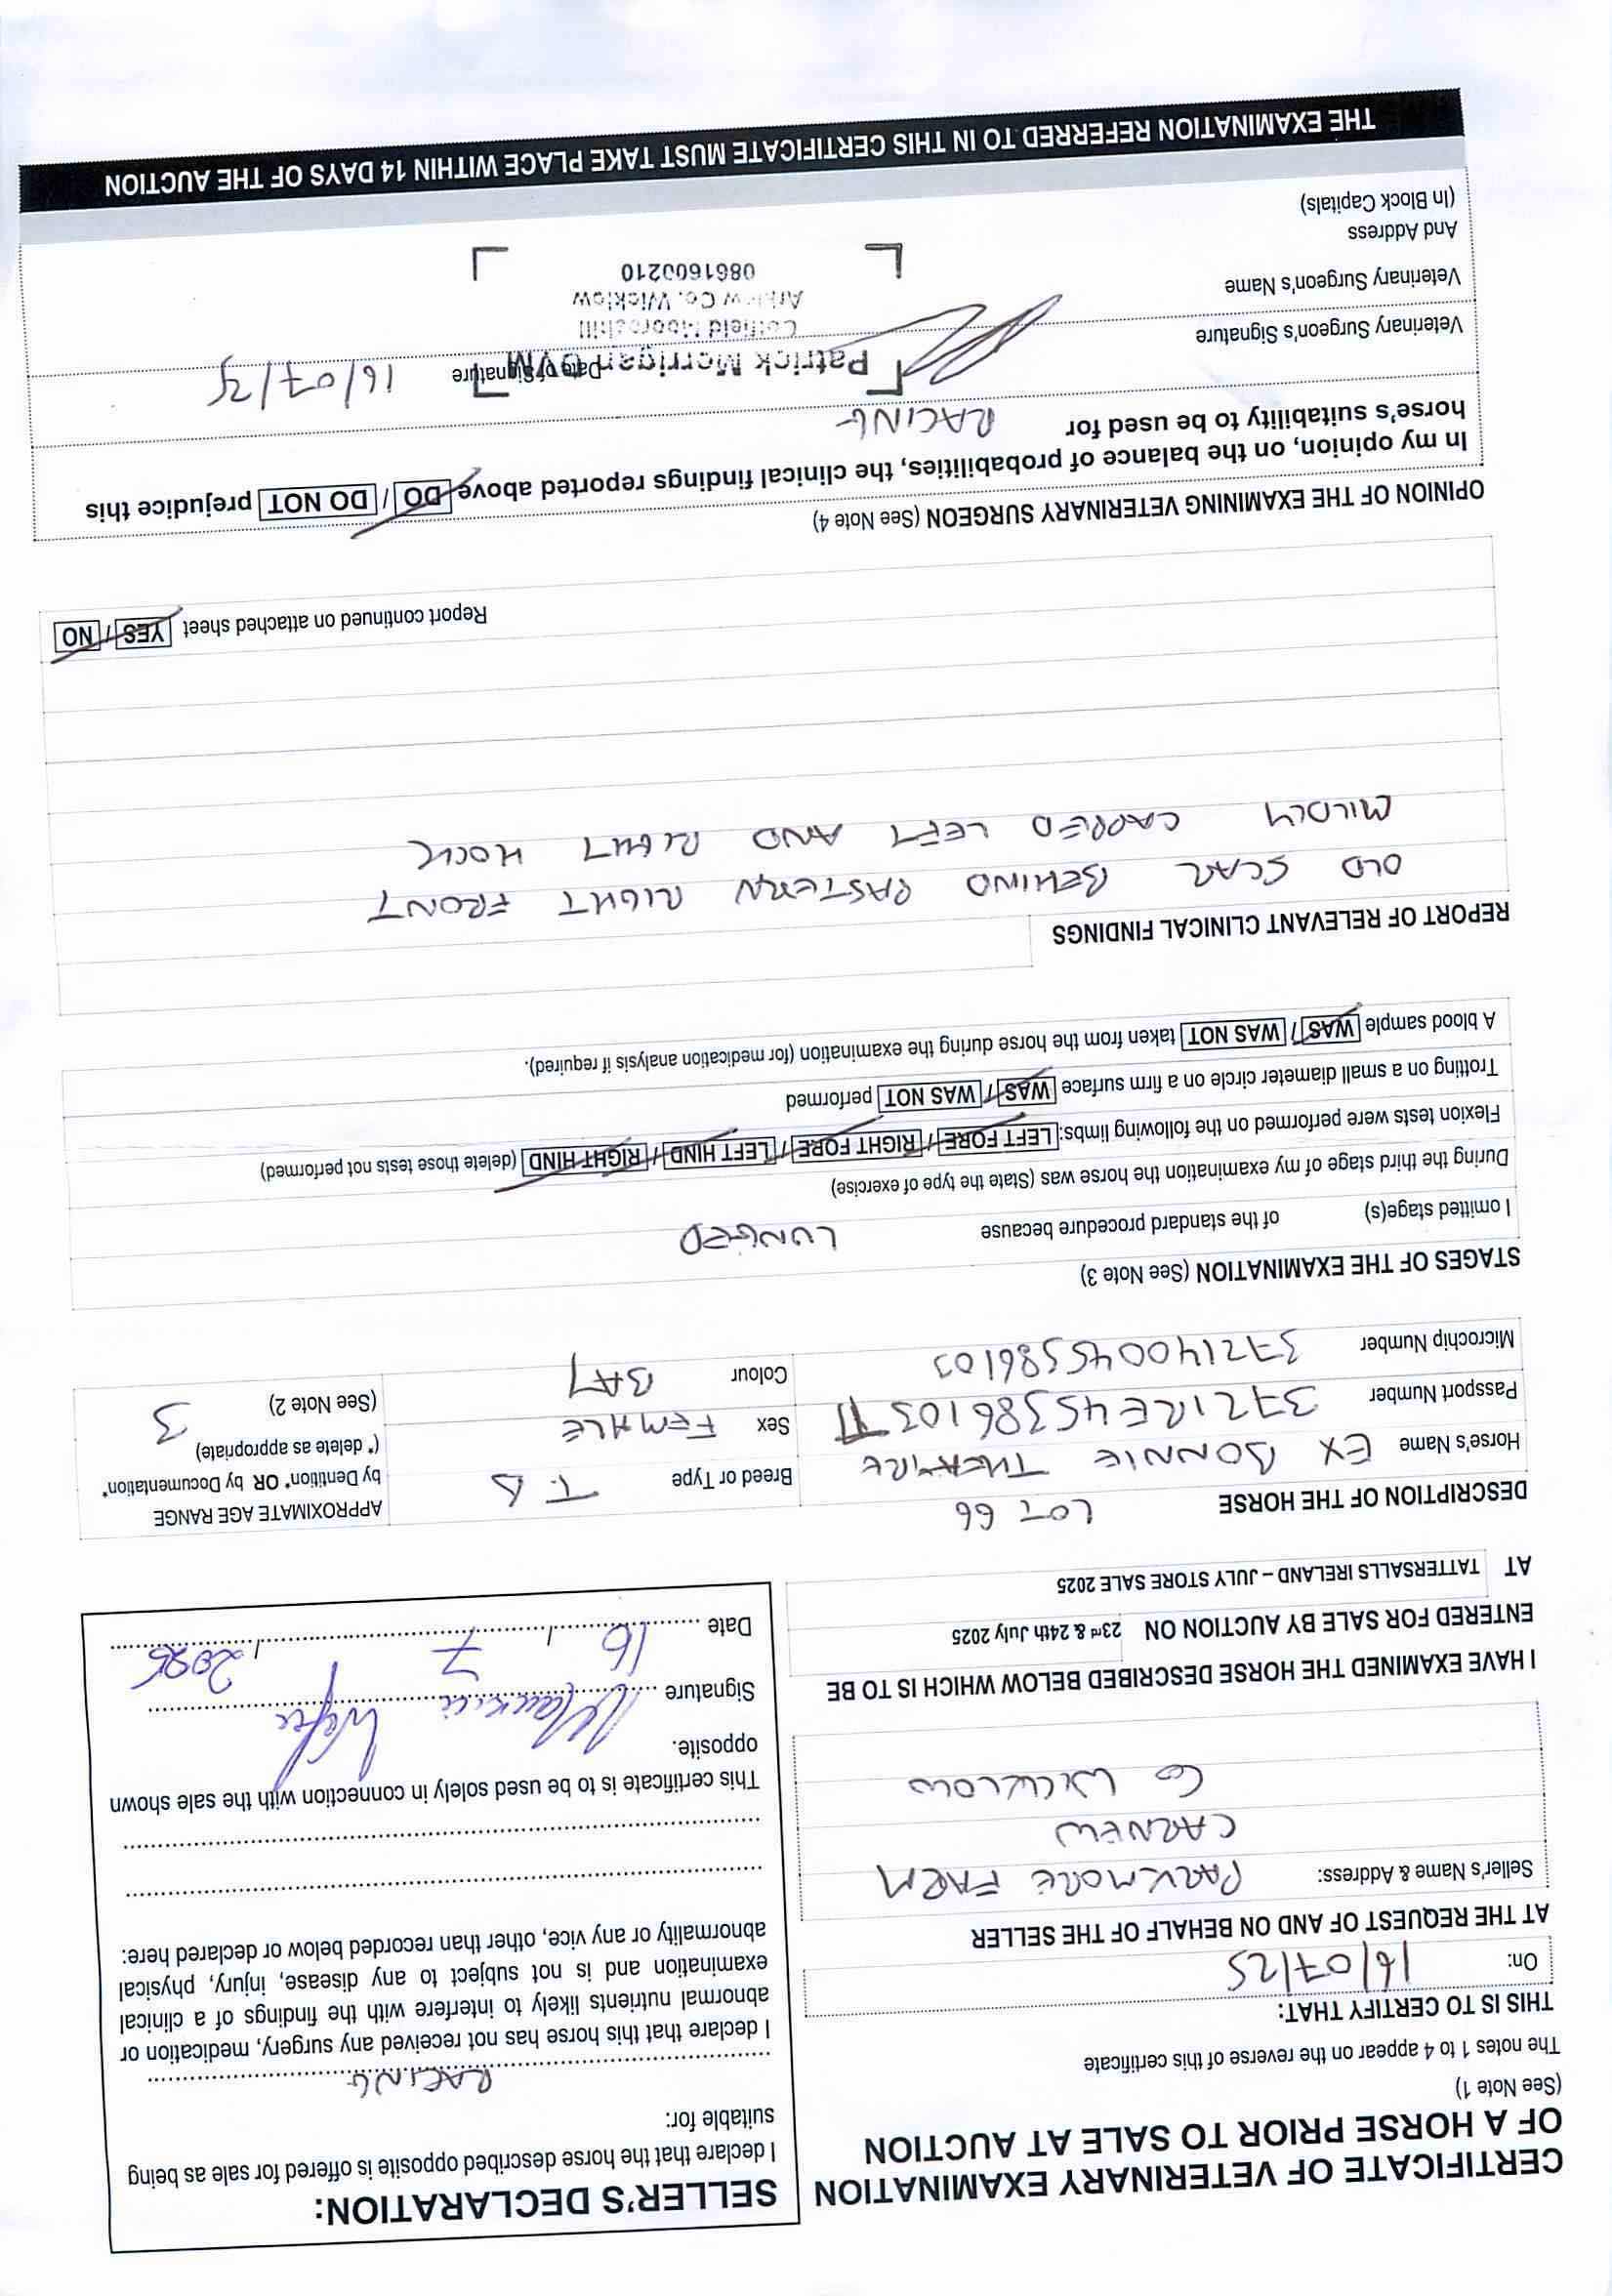 CERTIFICATE OF VETERINARY EXAMINATION
OF A HORSE PRIOR TO SALE AT AUCTION
(See Note 1)
The notes 1 to 4 appear on the reverse of this certificate
THIS IS TO CERTIFY THAT:
On: 16/07/25
AT THE REQUEST OF AND ON BEHALF OF THE SELLER
Seller's Name & Address: PARKMORE FARM
CARNEW
CO WICKLOW
I HAVE EXAMINED THE HORSE DESCRIBED BELOW WHICH IS TO BE
ENTERED FOR SALE BY AUCTION ON 23rd & 24th July 2025
AT TATTERSALLS IRELAND – JULY STORE SALE 2025
SELLER'S DECLARATION:
I declare that the horse described opposite is offered for sale as being
suitable for:
RACING
I declare that this horse has not received any surgery, medication or
abnormal nutrients likely to interfere with the findings of a clinical
examination and is not subject to any disease, injury, physical
abnormality or any vice, other than recorded below or declared here:
This certificate is to be used solely in connection with the sale shown
opposite.
Signature
Date 16 / 7 / 2025
DESCRIPTION OF THE HORSE LOT 66
Horse's Name EX BONNIE THEATRE
Passport Number
Microchip Number 372140045586103
Breed or Type T.B
Sex FEMALE
Colour BAY
APPROXIMATE AGE RANGE
by Dentition* OR by Documentation*
(* delete as appropriate)
(See Note 2) 3
STAGES OF THE EXAMINATION (See Note 3)
I omitted stage(s) of the standard procedure because
During the third stage of my examination the horse was (State the type of exercise) LUNGED
Flexion tests were performed on the following limbs: LEFT FORE / RIGHT FORE / LEFT HIND / RIGHT HIND (delete those tests not performed)
Trotting on a small diameter circle on a firm surface WAS / WAS NOT performed
A blood sample WAS / WAS NOT taken from the horse during the examination (for medication analysis if required).
REPORT OF RELEVANT CLINICAL FINDINGS
OLD SCAR BEHIND PASTERN RIGHT FRONT
MILDLY CAPPED LEFT AND RIGHT HOCK
Report continued on attached sheet YES / NO
OPINION OF THE EXAMINING VETERINARY SURGEON (See Note 4)
In my opinion, on the balance of probabilities, the clinical findings reported above DO / DO NOT prejudice this
horse's suitability to be used for RACING
Veterinary Surgeon's Signature
Date of Signature 16/07/25
Veterinary Surgeon's Name
And Address
(In Block Capitals)
Patrick Morrigan DVM
Co. Wicklow
0861600210
THE EXAMINATION REFERRED TO IN THIS CERTIFICATE MUST TAKE PLACE WITHIN 14 DAYS OF THE AUCTION